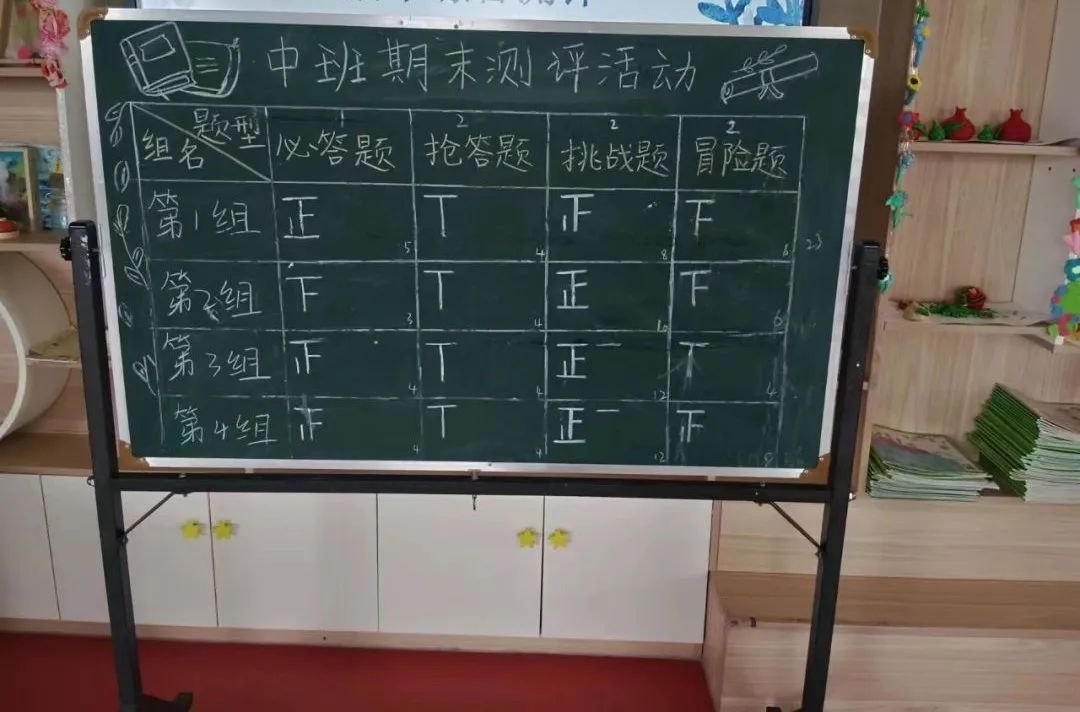 中班期末测评活动
1 2 2 2
题型 组名 必答题 抢答题 挑战题 冒险题
第1组 正 丅 正 下
5 4 8 6 23
第2组 下 丅 正 下
3 4 10 6
第3组 正 丅 正一 丅
4 4 12 4
第4组 正 丅 正一 正
4 4 12 8